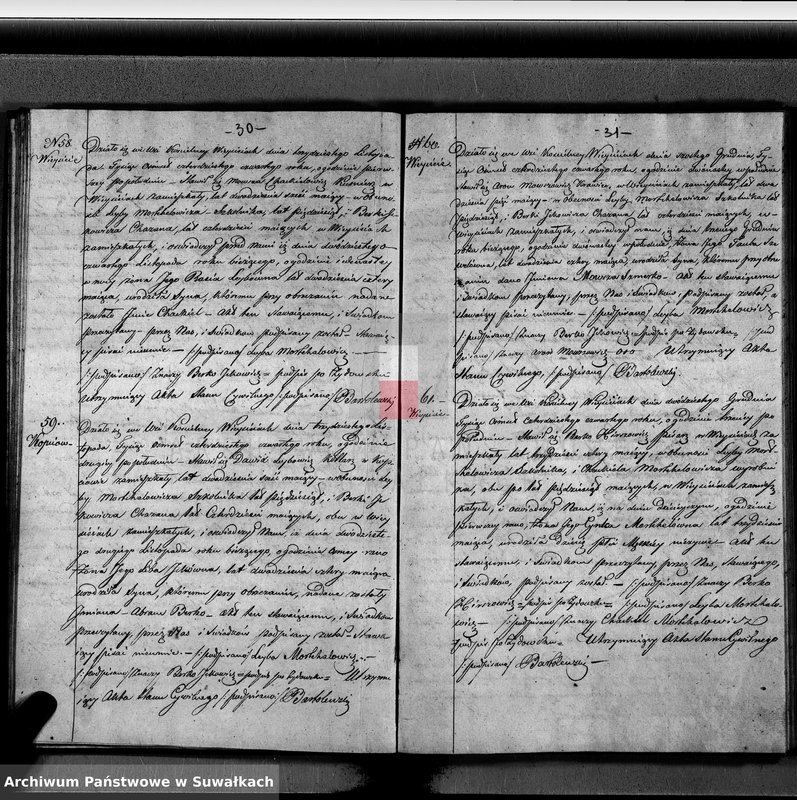 -30-
N 58.
Wiżajcie
Działo się w Wsi Kościelney Wiżajnach dnia trzydziestego Listopa-
da Tysiąc Ośmset czterdziestego czwartego roku, o godzinie pierw-
szey popołudniu - Stawił się Mowsza Chackielowicz Kusnierz w
Wiżajnach zamieszkały, lat dwadzieścia sześć maiący - w obecno-
ści Leyby Morthelowicza Szkolnika, lat pięćdziesiąt, i Berki Je-
kowicza Chazana, lat czterdzieści maiących w Wiżajnach
zamieszkałych, i oświadczył przed nami iż dnia dwódziestego
czwartego Listopada roku bieżącego, o godzinie
w nocy żona Jego Basia Leybowna lat dwadzieścia cztery
maiąca, urodziła Syna, któremu przy obrzezaniu nadane
zostało Imie Chackiel - Akt ten Stawaiącemu, i Świadkom
przeczytany - przez Nas, i Świadków podpisany został - Stawaią-
cy pisać nieumie - /:podpisano/ Leyba Morthelowicz -
/:podpisano/ Znaczy Berko Jekowicz - podpis po Żydowsku
Utrzymuiący Akta Stanu Cywilnego /:podpisano/ Bartolewski
59.
Działo się w Wsi Kościelney Wiżajnach dnia trzydziestego Lis-
topada, Tysiąc Ośmset czterdziestego czwartego roku, o godzinie
drugiey popołudniu - Stawił się Dawid Leybowicz
zamieszkały, lat dwadzieścia sześć maiący - w obecności Ley-
by Morthelowicza Szkolnika lat pięćdziesiąt, i Berki Je-
kowicza Chazana lat czterdzieści maiących, obu w Wiża-
jnach zamieszkałych, i oświadczył Nam, iż dnia dwódzieste-
go drugiego Listopada roku bieżącego, o godzinie ósmey rano
żona Jego Lida lat dwadzieścia cztery maiąca
urodziła Syna, któremu przy obrzezaniu, nadane zostały
Imiona - Abram Berko - Akt ten stawaiącemu, i Świadkom
przeczytany, przez Nas i Świadków podpisany został - Stawa-
iący pisać nieumie - /:podpisano/ Leyba Morthelowicz -
/:podpisano/ Znaczy Berko Jekowicz - podpis po Żydowsku - Utrzymu-
iący Akta Stanu Cywilnego /:podpisano/ Bartolewski
-31-
N 60.
Wiżajcie.
Działo się we Wsi Kościelney Wiżajnach dnia szóstego Grudnia, Ty-
siąc Ośmset czterdziestego czwartego roku, o godzinie dwunastey w południe
Stawił się Aron Mowszowicz Krawiec, w Wiżajnach zamieszkały, lat dwa-
dzieścia pięć maiący - w obecności Leyby Morthelowicza Szkolnika lat
pięćdziesiąt, i Berki Jekowicza Chazana, lat czterdzieści maiących, w
Wiżajnach zamieszkałych, i oświadczył nam, iż dnia Grudnia
roku bieżącego, o godzinie dwunastey w południe, żona Jego
lat dwadzieścia cztery maiąca, urodziła Syna, któremu przy obrze-
zaniu dano Imiona Mowsza - Akt ten stawaiącemu
i Świadkom przeczytany, przez Nas i Świadków podpisany został, a
stawaiący pisać nieumie - /:podpisano/ Leyba Morthelowicz
/:podpisano/ Znaczy Berko Jekowicz - podpis po Żydowsku - /:pod-
pisano/ Znaczy Aron Mowszowicz ooo Utrzymuiący Akta
Stanu Cywilnego, /:podpisano/ Bartolewski.
61.
Wiżajcie
Działo się, we Wsi Kościelney Wiżajnach dnia dwódziestego Grudnia
Tysiąc Ośmset czterdziestego czwartego roku, o godzinie trzeciey po
południu - Stawił się Berko Hirszowicz w Wiżajnach za-
mieszkały lat trzydzieści cztery maiący, w obecności Leyby Mort-
helowicza Szkolnika, i Chackiela Morthelowicza wyrobni-
ka, obu po lat pięćdziesiąt maiących, w Wiżajnach zamiesz-
kałych, i oświadczył Nam, iż na dniu dzisieyszym, o godzinie
pierwszey rano, żona Jego Cywka Morthelowna lat trzydzieści
maiąca, urodziła Dziecię płci Męzkiey nieżywe - Akt ten
stawaiącemu, i Świadkom przeczytany, przez Nas, stawaiącego,
i Świadków, podpisany został - /:podpisano/ Znaczy Berko
Hirszowicz - podpis po Żydowsku - /:podpisano/ Leyba Morthelo-
wicz - /:podpisano/ Znaczy Chackiel Morthelowicz
podpis po Żydowsku - Utrzymuiący Akta Stanu Cywilnego
/:podpisano/ Bartolewski -
Archiwum Państwowe w Suwałkach